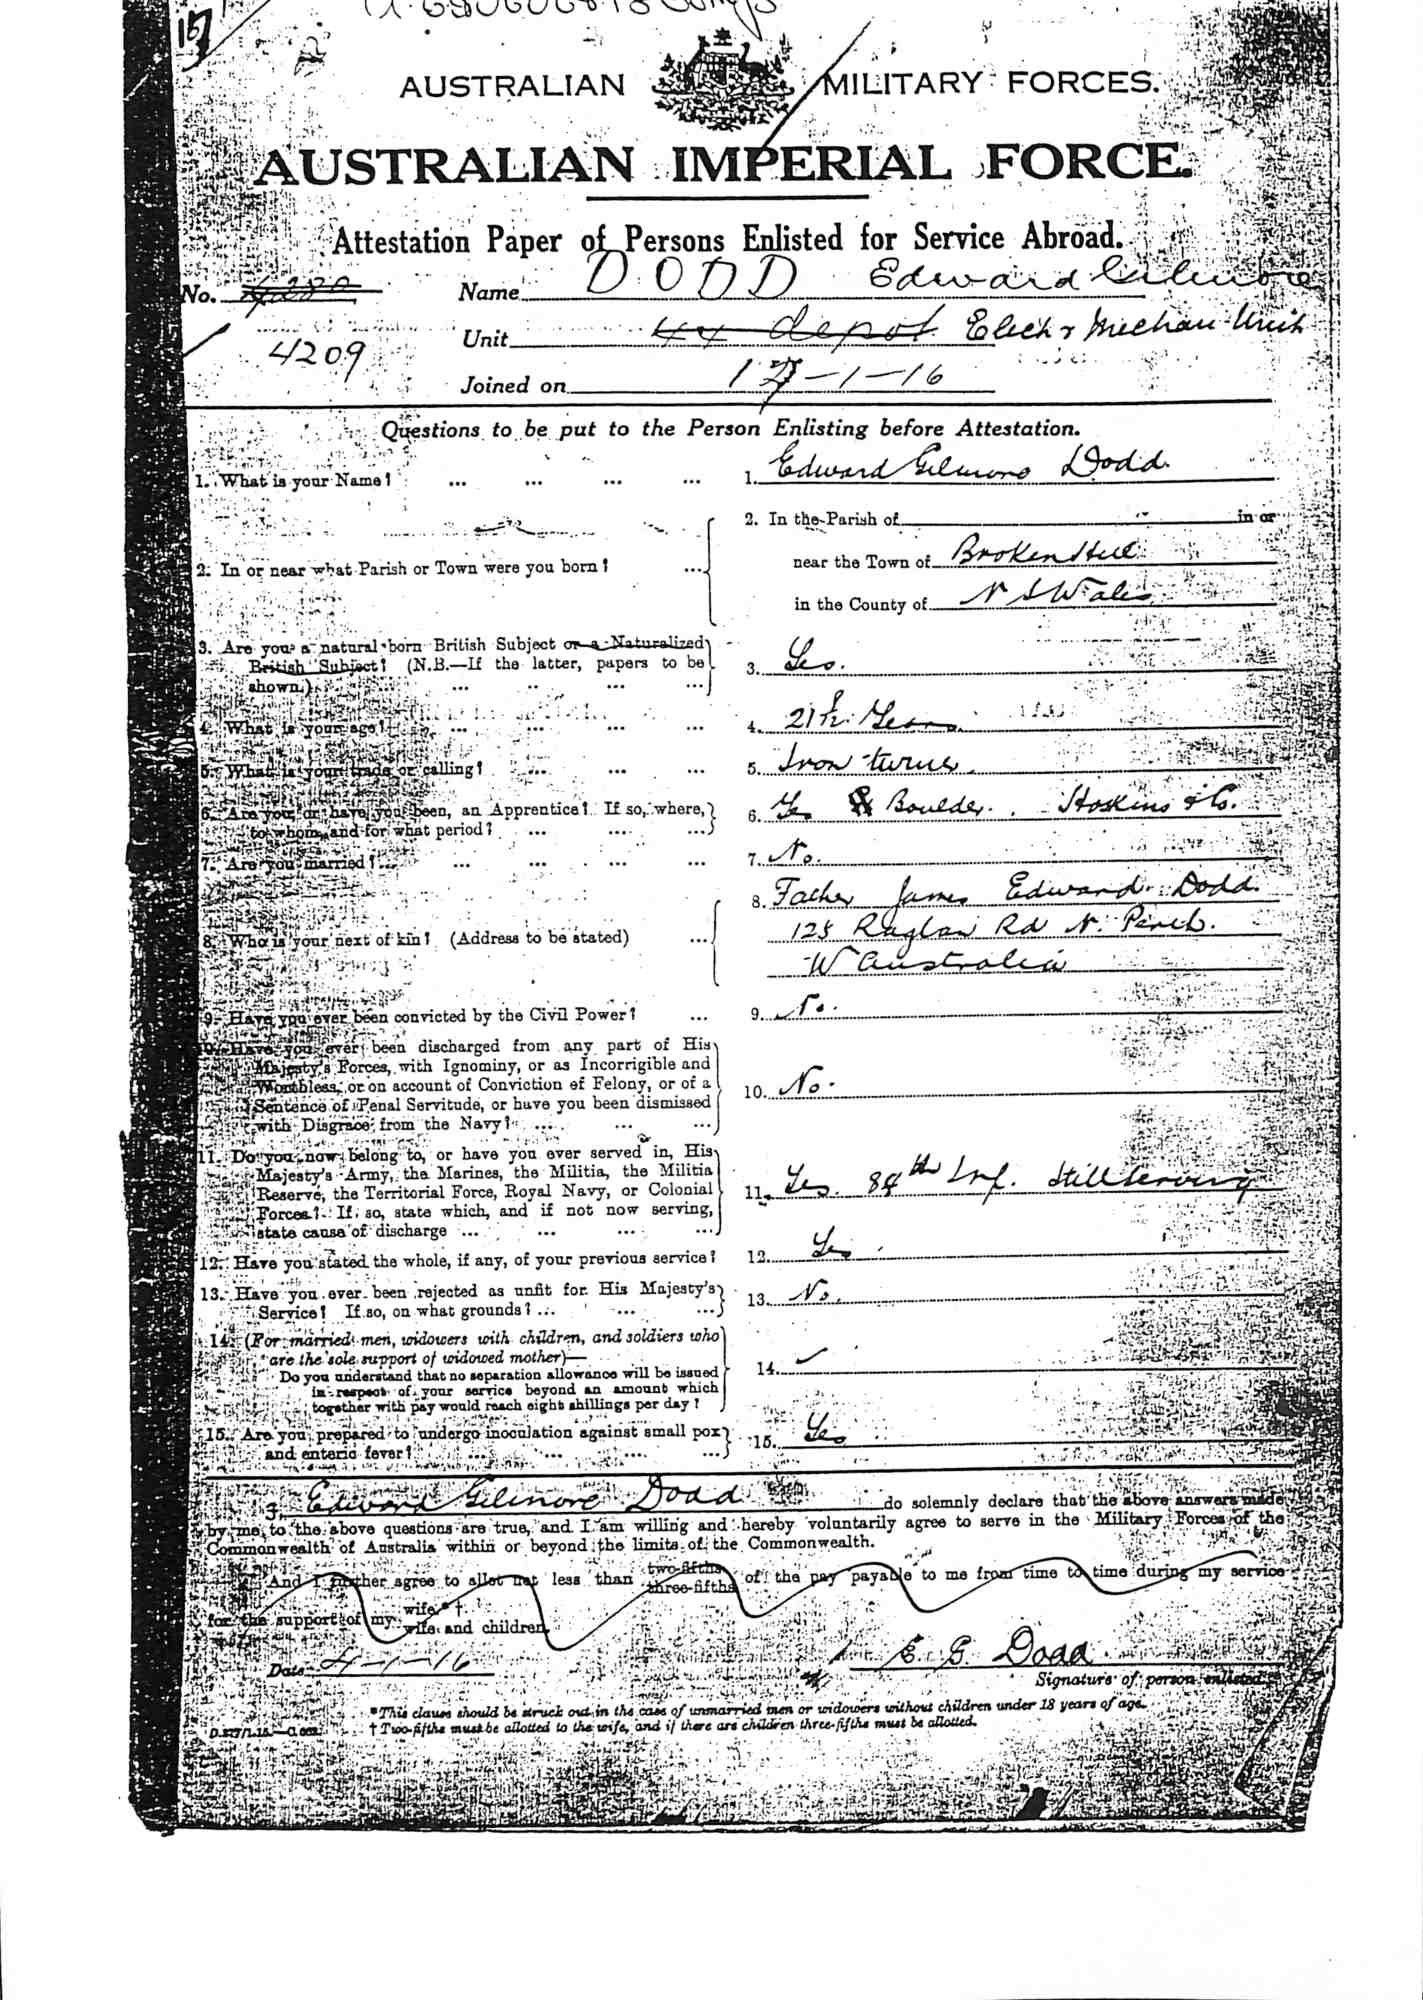 15
AUSTRALIAN MILITARY FORCES.
AUSTRALIAN IMPERIAL FORCE.
Attestation Paper of Persons Enlisted for Service Abroad.
No. 4209
Name DODD Edward Gilmore
Unit 44 depot Elect & Mechan Unit
Joined on 17-1-16
Questions to be put to the Person Enlisting before Attestation.
1. What is your Name? ... ... ... ... 1. Edward Gilmore Dodd.
2. In or near what Parish or Town were you born? ... 2. In the Parish of in or
near the Town of Broken Hill
in the County of N S Wales
3. Are you a natural born British Subject or a Naturalized
British Subject? (N.B.—If the latter, papers to be
shown.) ... ... ... ... 3. Yes.
4. What is your age? ... ... ... ... 4. 21 Years.
5. What is your trade or calling? ... ... ... 5. Iron turner.
6. Are you, or have you been, an Apprentice? If so, where,
to whom, and for what period? ... ... ... 6. Yes Boulder. Hoskins & Co.
7. Are you married? ... ... ... ... 7. No.
8. Who is your next of kin? (Address to be stated) ... 8. Father James Edward Dodd.
125 Raglan Rd N. Perth.
W Australia
9. Have you ever been convicted by the Civil Power? ... 9. No.
10. Have you ever been discharged from any part of His
Majesty's Forces, with Ignominy, or as Incorrigible and
Worthless, or on account of Conviction of Felony, or of a
Sentence of Penal Servitude, or have you been dismissed
with Disgrace from the Navy? ... ... ... 10. No.
11. Do you now belong to, or have you ever served in, His
Majesty's Army, the Marines, the Militia, the Militia
Reserve, the Territorial Force, Royal Navy, or Colonial
Forces? If so, state which, and if not now serving,
state cause of discharge ... ... ... ... 11. Yes. 84th Inf. Still serving
12. Have you stated the whole, if any, of your previous service? 12. Yes.
13. Have you ever been rejected as unfit for His Majesty's
Service? If so, on what grounds? ... ... ... 13. No.
14. (For married men, widowers with children, and soldiers who
are the sole support of widowed mother)—
Do you understand that no separation allowance will be issued
in respect of your service beyond an amount which
together with pay would reach eight shillings per day? 14.
15. Are you prepared to undergo inoculation against small pox
and enteric fever? ... ... ... 15. Yes
I, Edward Gilmore Dodd do solemnly declare that the above answers made
by me to the above questions are true, and I am willing and hereby voluntarily agree to serve in the Military Forces of the
Commonwealth of Australia within or beyond the limits of the Commonwealth.
And I further agree to allot not less than two-fifths three-fifths of the pay payable to me from time to time during my service
for the support of my wife*† wife and children.
Date 4-1-16 E G Dodd
Signature of person enlisted.
*This clause should be struck out in the case of unmarried men or widowers without children under 18 years of age.
† Two-fifths must be allotted to the wife, and if there are children three-fifths must be allotted.